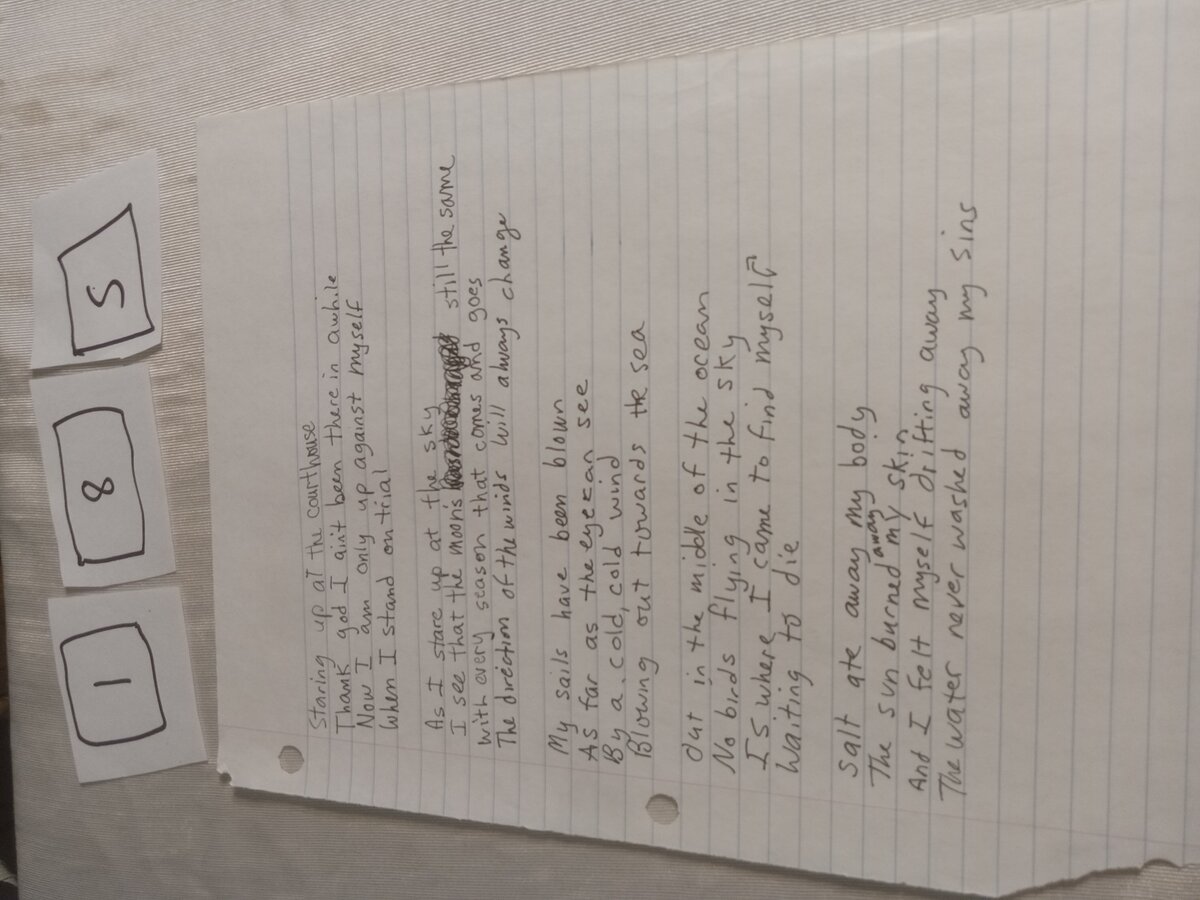 1 8 5
Staring up at the courthouse
Thank god I ain't been there in awhile
Now I am only up against myself
When I stand on trial
As I stare up at the sky
I see that the moon's still the same
With every season that comes and goes
The direction of the winds will always change
My sails have been blown
As far as the eye can see
By a cold, cold wind
Blowing out towards the sea
Out in the middle of the ocean
No birds flying in the sky
Is where I came to find myself
Waiting to die
Salt ate away my body
The sun burned away my skin
And I felt myself drifting away
The water never washed away my sins